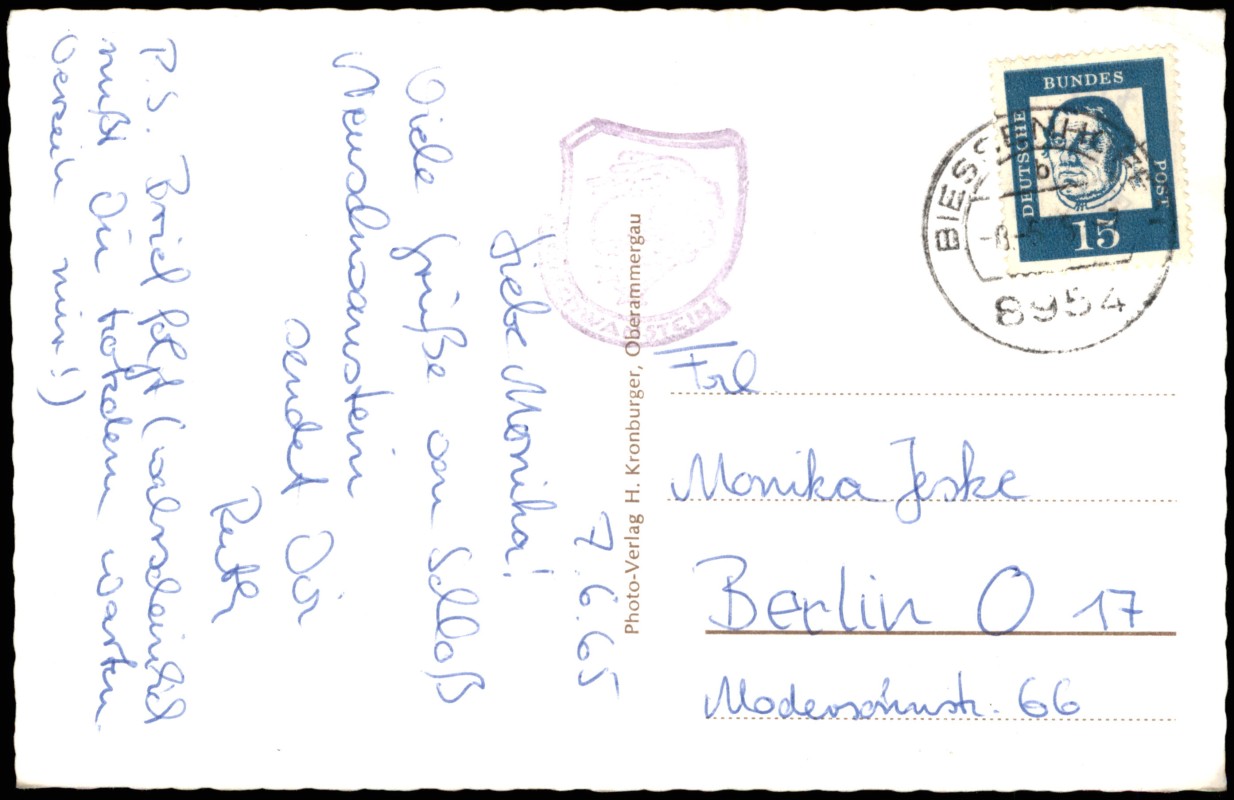 7.6.65
Liebe Monika!
Viele Grüße von Schloß
Neuschwanstein
sendet Dir
Ruth
P.S. Brief folgt (warscheinlich
mußt Du trotzdem warten.
Verzeih mir!)
Photo-Verlag H. Kronburger, Oberammergau
DEUTSCHE
BUNDES
POST
15
BIESSENHOFEN
8954
Frl.
Monika Jeske
Berlin O 17
Modersohnstr. 66